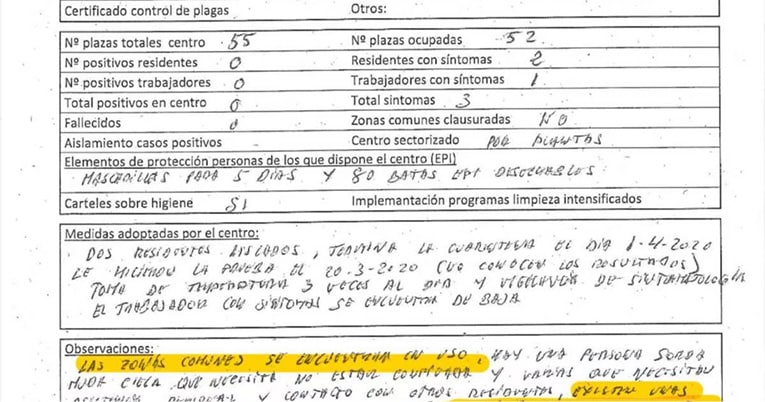 Certificado control de plagas Otros:
Nº plazas totales centro 55 Nº plazas ocupadas 52
Nº positivos residentes 0 Residentes con síntomas 2
Nº positivos trabajadores 0 Trabajadores con síntomas 1
Total positivos en centro 0 Total sintomas 3
Fallecidos 0 Zonas comunes clausuradas NO
Aislamiento casos positivos Centro sectorizado POR PLANTAS
Elementos de protección personas de los que dispone el centro (EPI)
MASCARILLAS PARA 5 DIAS Y 80 BATAS EPI DESECHABLES
Carteles sobre higiene SI Implementación programas limpieza intensificados
Medidas adoptadas por el centro:
DOS RESIDENTES AISLADOS, TERMINA LA CUARENTENA EL DIA 1-4-2020
LE HICIERON LA PRUEBA EL 20-3-2020 (NO CONOCEN LOS RESULTADOS)
TOMA DE TEMPERATURA 3 VECES AL DIA Y VIGILANCIA DE SINTOMATOLOGIA
EL TRABAJADOR CON SINTOMAS SE ENCUENTRA DE BAJA
Observaciones:
LAS ZONAS COMUNES SE ENCUENTRAN EN USO, HAY UNA PERSONA SORDA
MUDA CIEGA QUE NECESITA NO ESTAR CONFINADA Y VARIAS QUE NECESITAN
Y CONTACTO CON OTROS RESIDENTES, EXISTEN UNAS